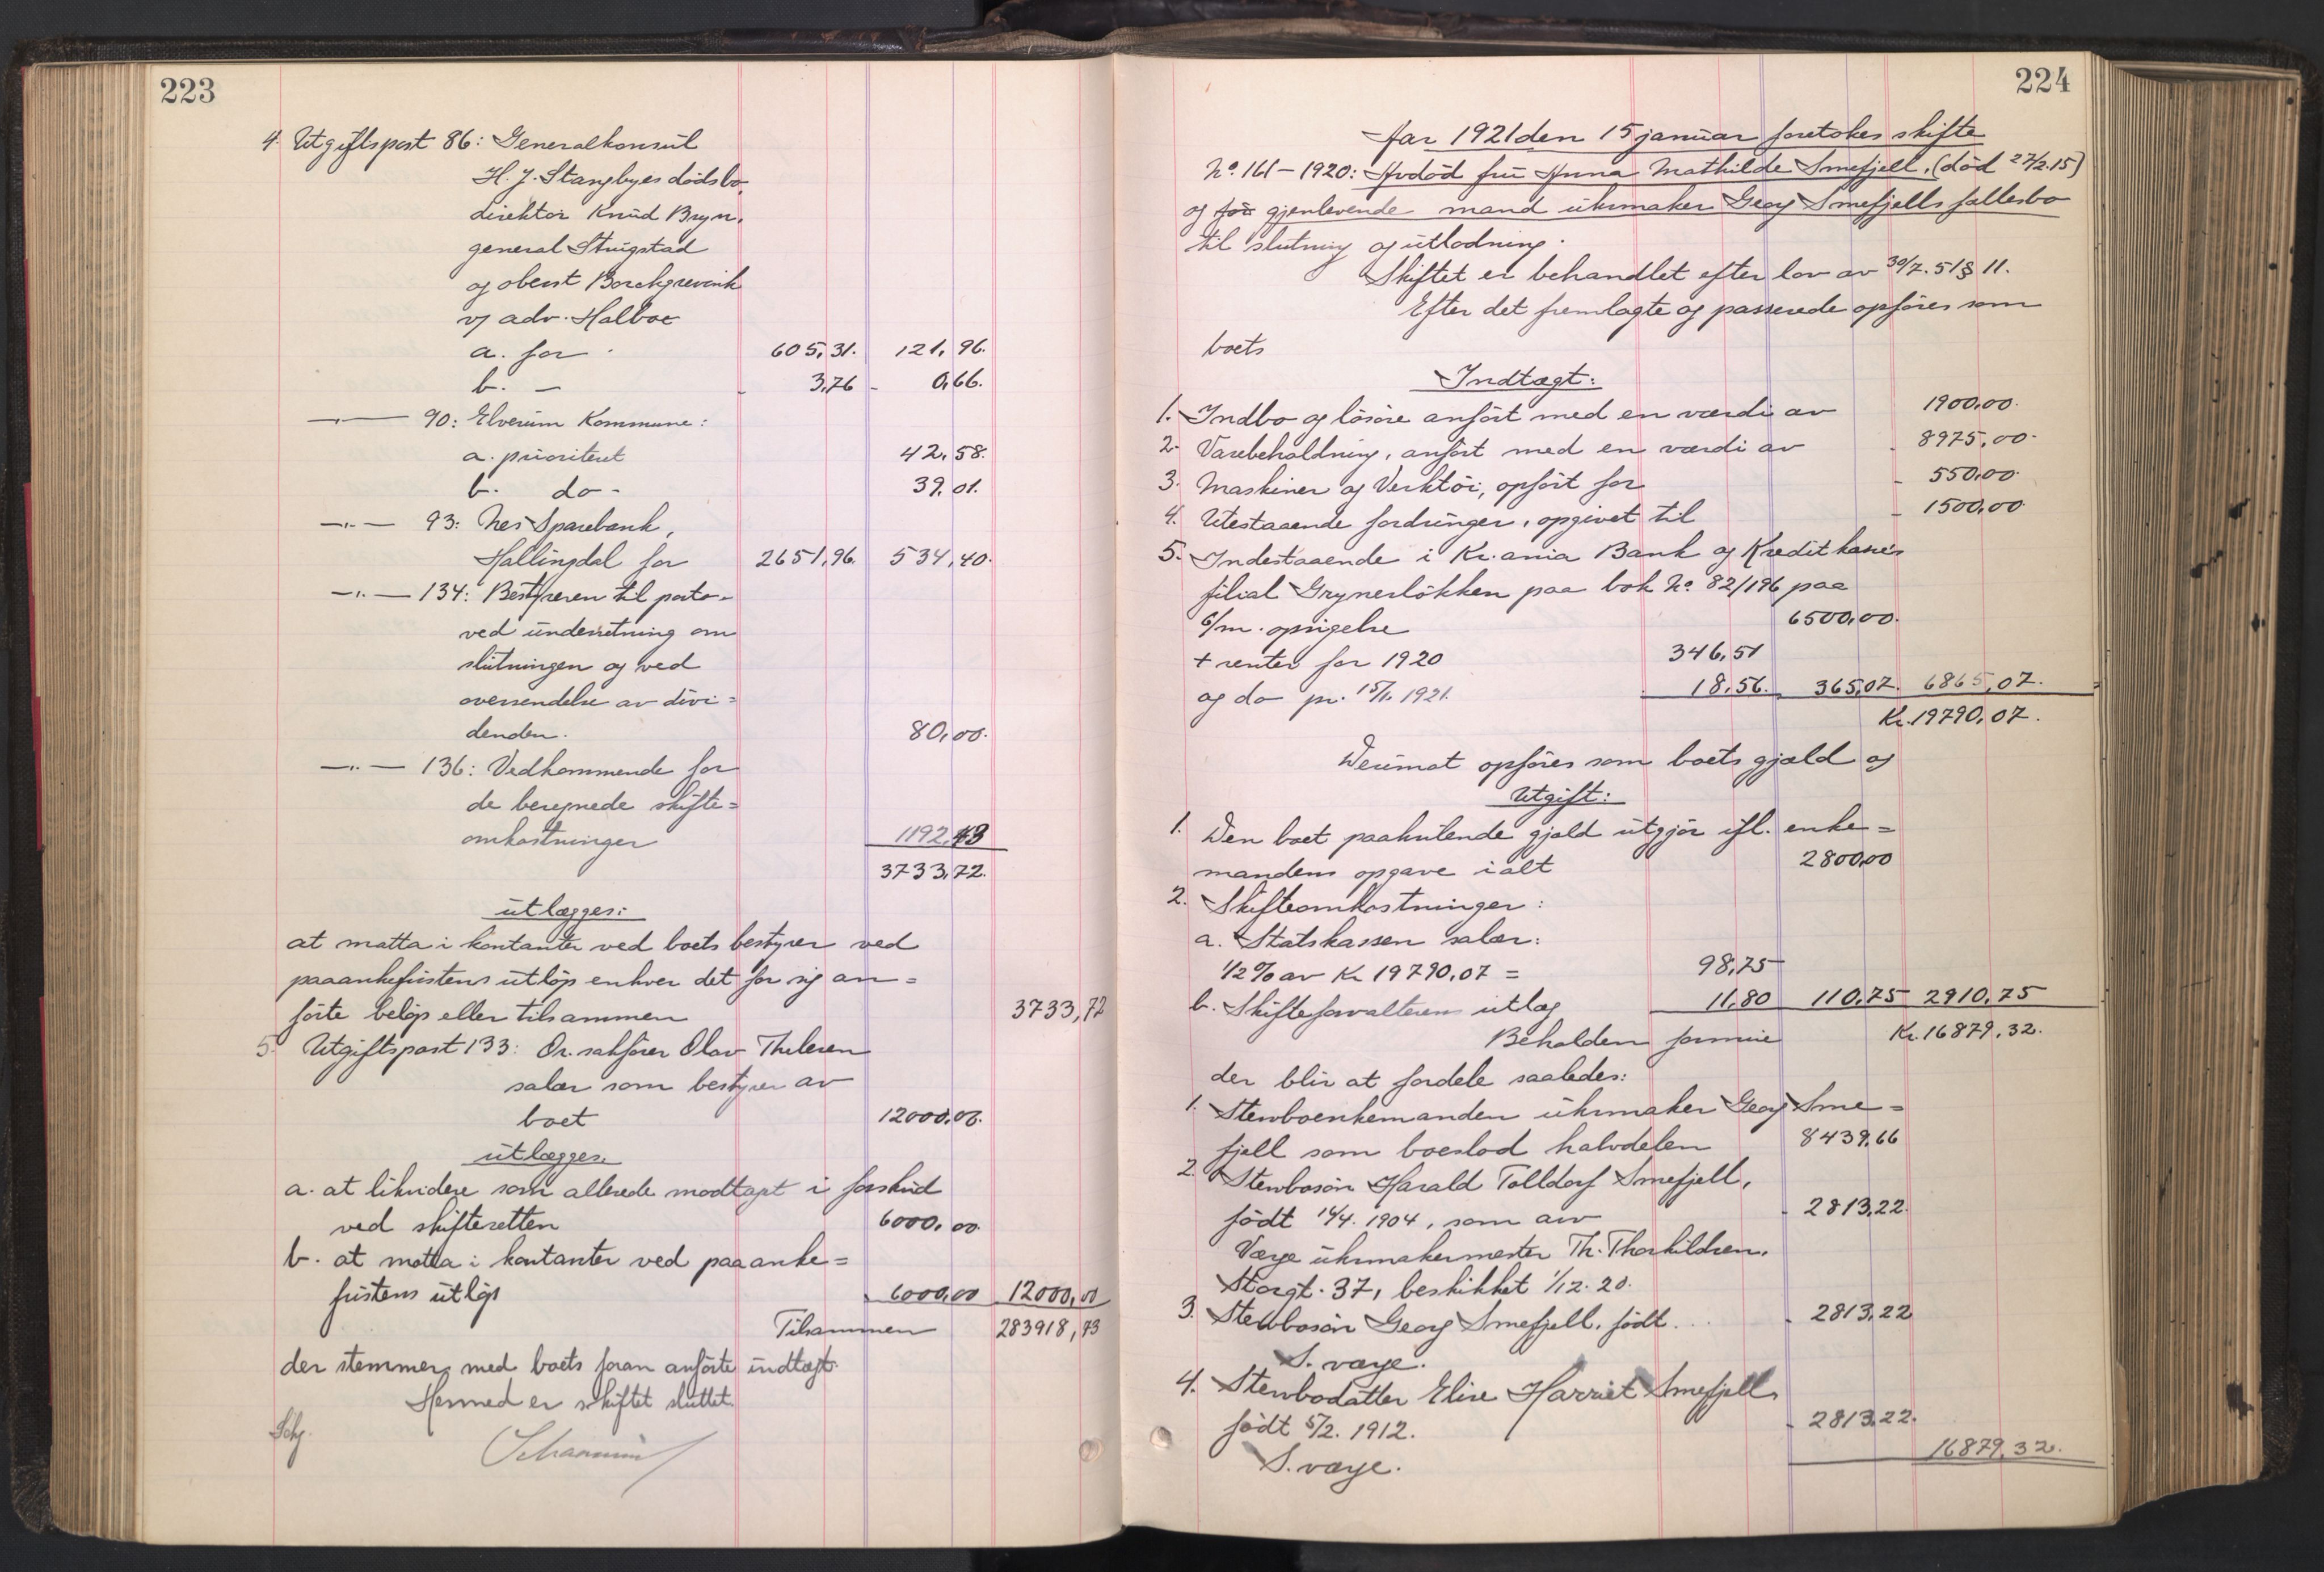 223
4. Utgiftspost 86: Generalkonsul
H. J. Stangbyes dødsbo,
direktør Knud Bryn,
general Strugstad
og oberst Borchgrevink
v/ adv. Holboe
a. for 605,31. 121,96.
b. — - 3,76 - 0,66.
—"— 90: Elverum Kommune:
a. prioritert 42,58.
b. do - 39,01.
—"— 93: Nes Sparebank,
Hallingdal for 2651,96. 534,40.
—"— 134: Bestyreren til porto
ved underretning om
slutningen og ved
oversendelse av divi=
denden. 80,00.
—"— 136: Vedkommende for
de beregnede skifte=
omkostninger 1192,43
3733,72.
utlægges:
at motta i kontanter ved boets bestyrer ved
paaankefristens utløp enhver det for sig an=
førte beløp eller tilsammen 3733,72
5. Utgiftspost 133: Or. sakfører Olav Thelesen
salær som bestyrer av
boet 12000,00.
utlægges:
a. at likvidere som allerede modtaget i forskud
ved skifteretten 6000,00.
b. at motta i kontanter ved paaanke=
fristens utløp 6000,00 12000,00
Tilsammen 283918,73
der stemmer med boets foran anførte indtægt.
Hermed er skiftet sluttet.
224
Aar 1921 den 15 januar foretokes skifte
No. 161 - 1920: Avdød fru Anna Mathilde Smefjell, (død 27/2.15)
og for gjenlevende mand uhrmaker Georg Smefjells fællesbo
til slutning og utlodning.
Skiftet er behandlet efter lov av 30/7.51 § 11.
Efter det fremlagte og passerede opføres som
boets
Indtægt:
1. Indbo og løsøre anført med en værdi av 1900,00.
2. Varebeholdning, anført med en værdi av - 8975,00.
3. Maskiner og Verktøi, opført for - 550,00.
4. Utestaaende fordringer, opgivet til - 1500,00.
5. Indestaaende i Kr.ania Bank og Kreditkasses
filial Grynerløkken paa bok No. 82/196 paa
6/m. opsigelse 6500,00.
+ renter for 1920 346,51
og do pr. 15/1. 1921. 18,56. 365,07. 6865,07.
Kr. 19790,07.
Derimot opføres som boets gjæld og
Utgift:
1. Den boet paahvilende gjæld utgjør ifl. enke=
mandens opgave ialt 2800,00
2. Skifteomkostninger:
a. Statskassen salær:
1/2 % av Kr 19790,07 = 98,75
b. Skifteforvalterens utlæg 11,80 110,75 2910,75
Beholden formue Kr. 16879,32.
der blir at fordele saaledes:
1. Stervboenkemanden uhrmaker Georg Sme=
fjell som boeslod halvdelen 8439,66
2. Stervbosøn Harald Tolldorf Smefjell,
født 14/4. 1904, som arv - 2813,22.
Værge uhrmakermester Th. Thorkildsen,
Storgt. 37, beskikket 1/12.20.
3. Stervbosøn Georg Smefjell, født... - 2813,22
S. værge.
4. Stervbodatter Elise Harriet Smefjell,
født 5/2. 1912. - 2813,22.
16879,32.
S. værge.